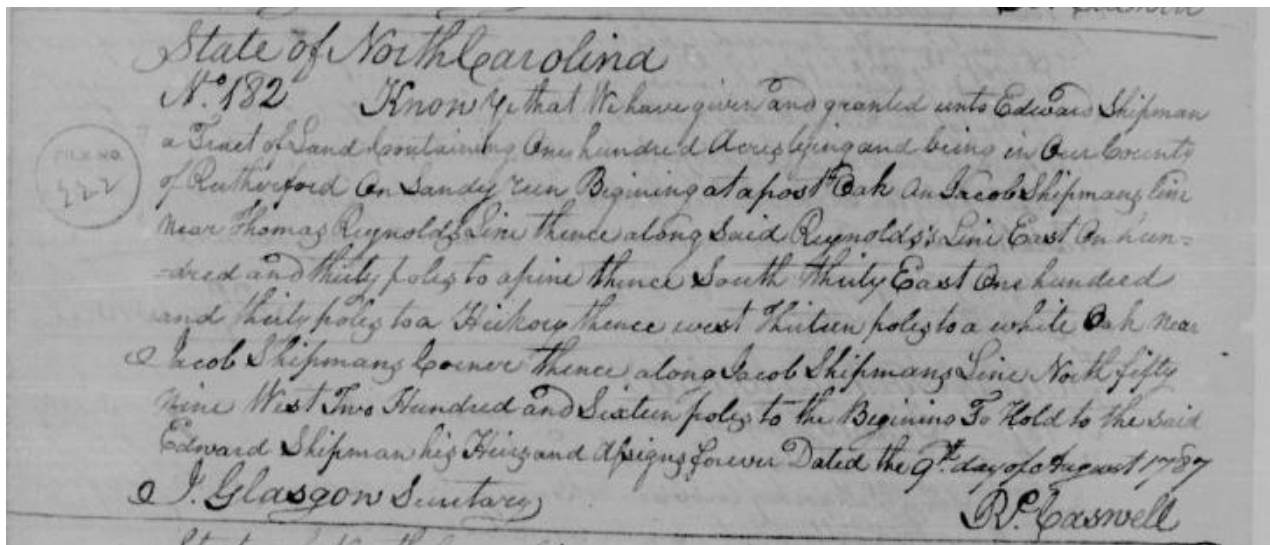 State of North Carolina
No. 182 Know Ye that We have given and granted unto Edward Shipman
a Tract of Land Containing One hundred Acres lying and being in Our County
of Rutherford On Sandy run Begining at a post Oak on Jacob Shipmans line
FILE NO.
222
near Thomas Reynolds Line thence along Said Reynolds's Line East On hun=
=dred and thirty poles to a pine thence South thirty East One hundred
and thirty poles to a Hickory thence west Thirteen poles to a white Oak near
Jacob Shipmans Corner thence along Jacob Shipmans Line North fifty
nine West Two Hundred and Sixteen poles to the Begining To Hold to the said
Edward Shipman his Heirs and Assigns forever Dated the 9th day of August 1787
J. Glasgow Secretary
Rd. Caswell